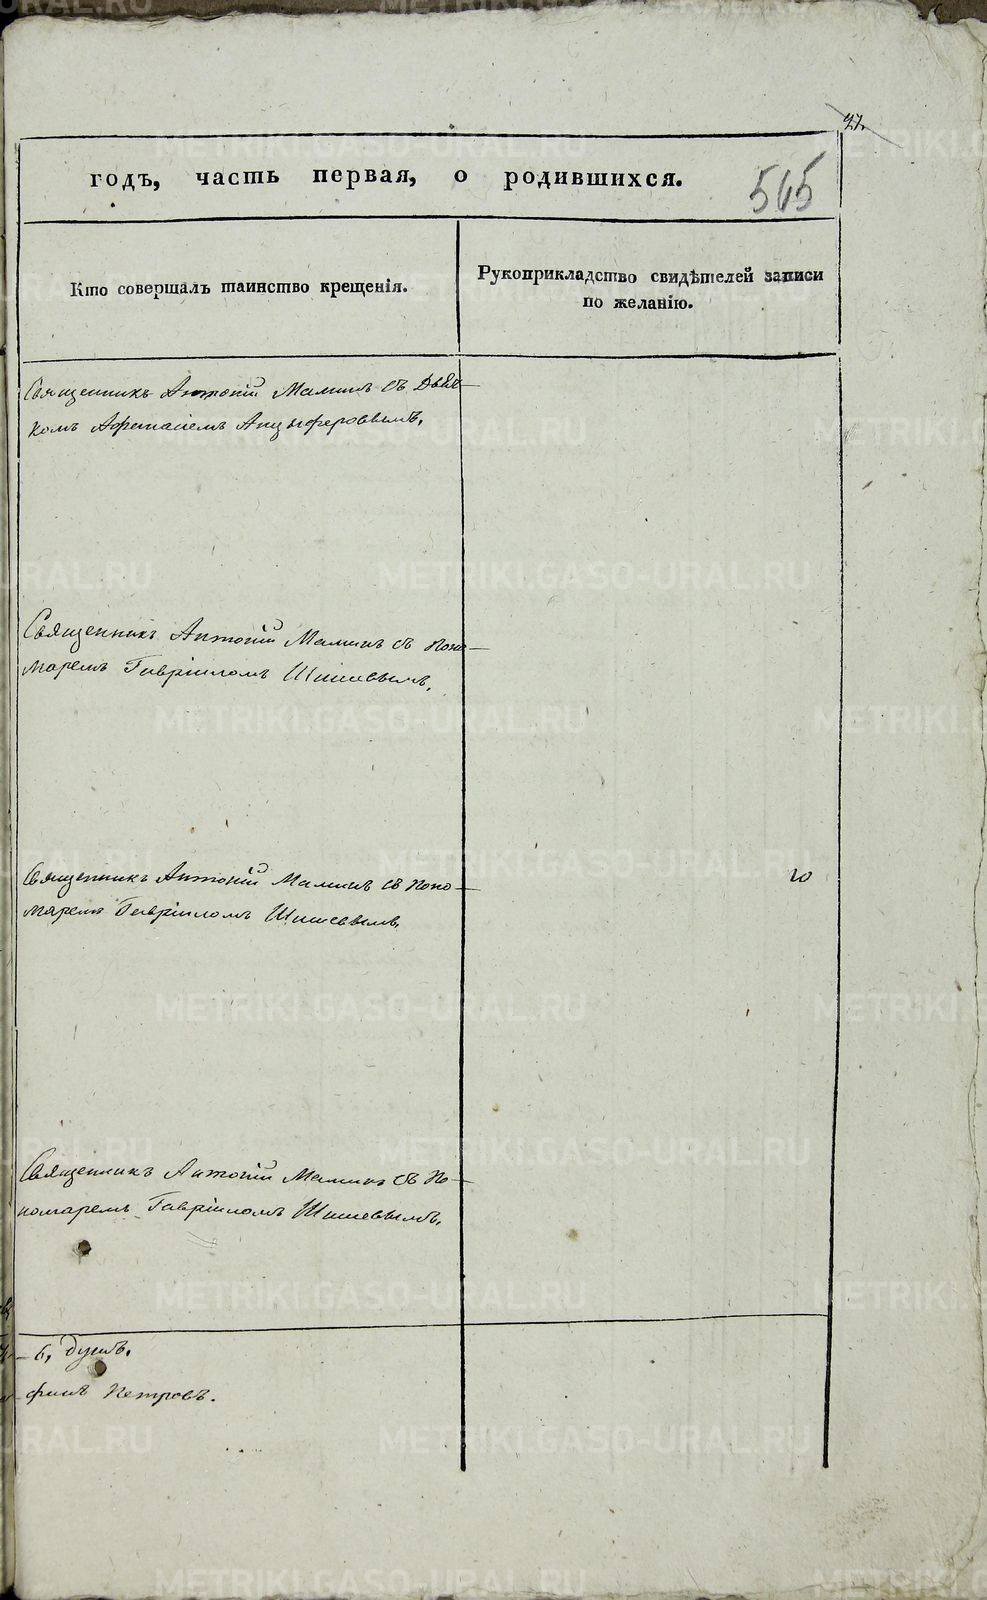 27.
годъ, часть первая, о родившихся.
565
Кто совершалъ таинство крещенія.
Рукоприкладство свидѣтелей записи
по желанію.
Священникъ Антоній Маминъ съ Дьяч-
комъ Афанасіемъ Анцыферовымъ.
Священникъ Антоній Маминъ съ Поно-
маремъ Гавріиломъ Шишевымъ.
Священникъ Антоній Маминъ съ Поно-
маремъ Гавріиломъ Шишевымъ.
Священникъ Антоній Маминъ съ По-
номаремъ Гавріиломъ Шишевымъ.
- 6, душъ.
Петровъ.
METRIKI.GASO-URAL.RU